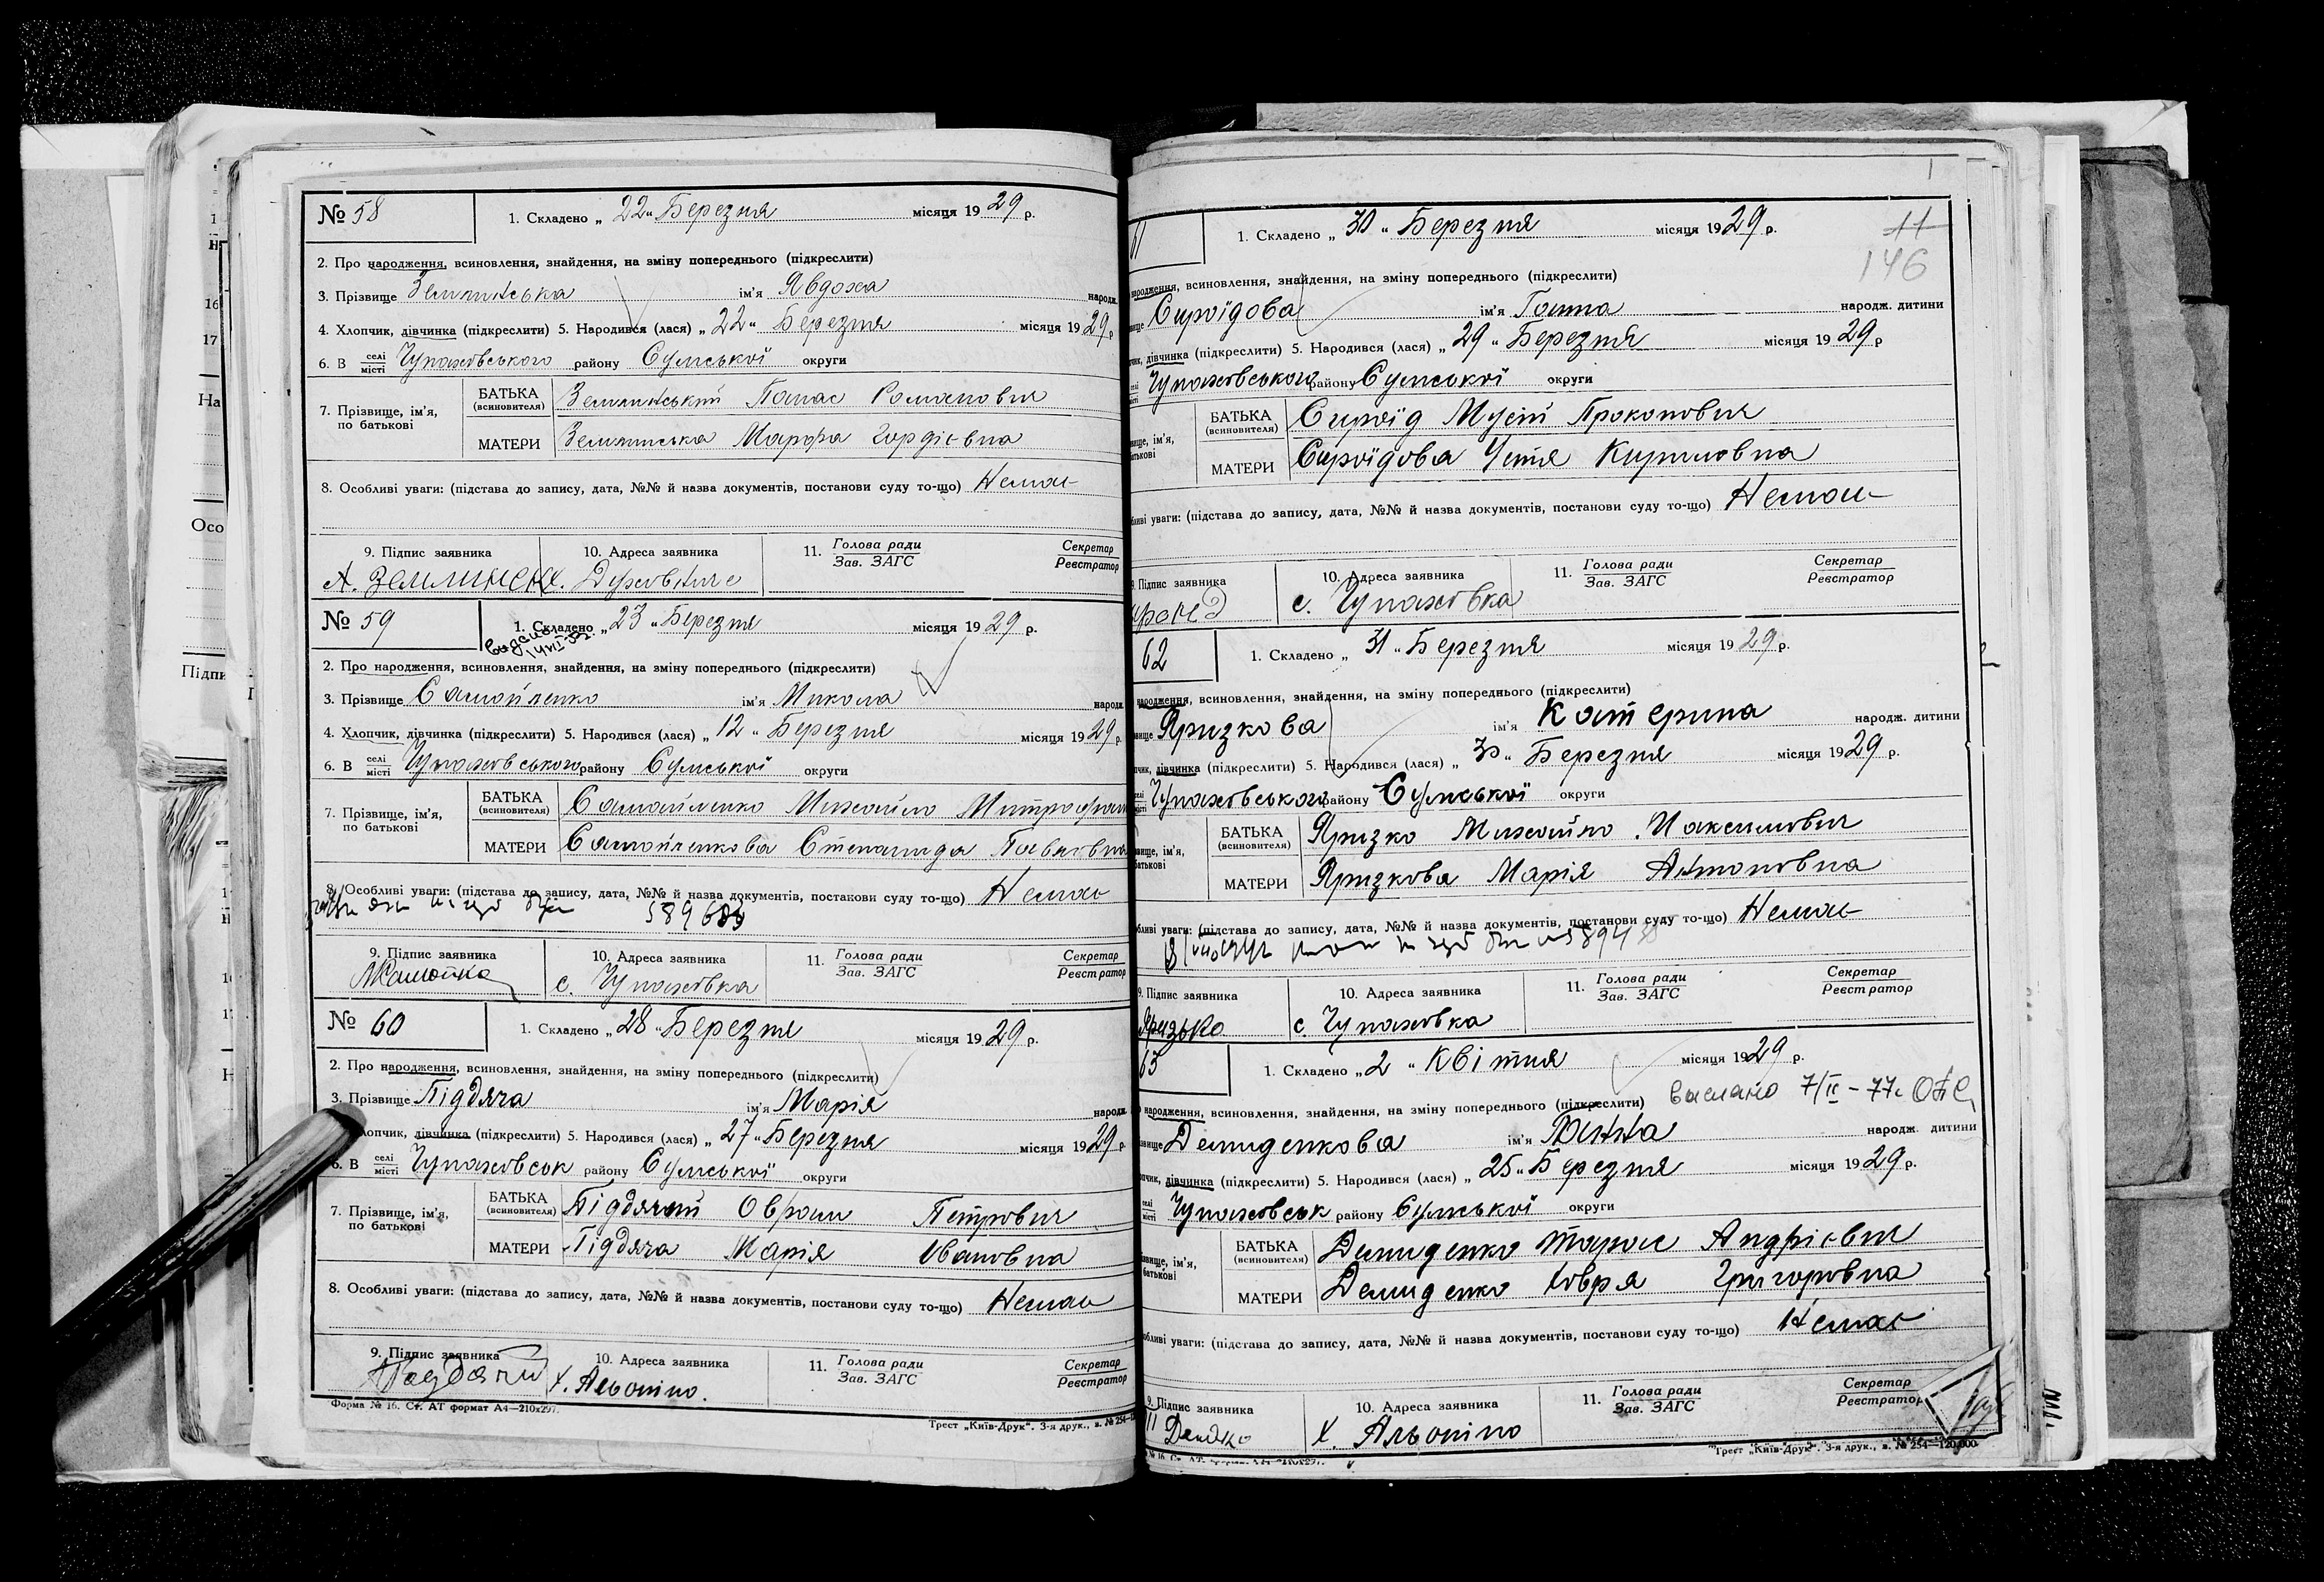 № 58
1. Складено „ 22 “ Березня місяця 19 29 р.
2. Про народження, всиновлення, знайдення, на зміну попереднього (підкреслити)
3. Прізвище Землинська ім'я Явдоха народж.
4. Хлопчик, дівчинка (підкреслити) 5. Народився (лася) „ 22 “ Березня місяця 19 29 р
6. В селі місті Чупахівського району Сумської округи
7. Прізвище, ім'я, по батькові
БАТЬКА (всиновителя) Землинський Панас Романович
МАТЕРИ Землинська Марфа Гордієвна
8. Особливі уваги: (підстава до запису, дата, №№ й назва документів, постанови суду то-що) Немає
9. Підпис заявника 10. Адреса заявника 11. Голова ради Зав. ЗАГС Секретар Реєстратор
А. Землинск
№ 59
1. Складено „ 23 “ Березня місяця 19 29 р.
2. Про народження, всиновлення, знайдення, на зміну попереднього (підкреслити)
3. Прізвище Самойленко ім'я Микола народж.
4. Хлопчик, дівчинка (підкреслити) 5. Народився (лася) „ 12 “ Березня місяця 19 29 р.
6. В селі місті Чупахівського району Сумської округи
7. Прізвище, ім'я, по батькові
БАТЬКА (всиновителя) Самойленко Михайло Митрофан
МАТЕРИ Самойленкова Степанида Павловна
8. Особливі уваги: (підстава до запису, дата, №№ й назва документів, постанови суду то-що) Немає
9. Підпис заявника 10. Адреса заявника 11. Голова ради Зав. ЗАГС Секретар Реєстратор
с. Чупахівка
№ 60
1. Складено „ 28 “ Березня місяця 19 29 р.
2. Про народження, всиновлення, знайдення, на зміну попереднього (підкреслити)
3. Прізвище Піддяча ім'я Марія народж.
Хлопчик, дівчинка (підкреслити) 5. Народився (лася) „ 27 “ Березня місяця 19 29 р.
6. В селі місті Чупахівськ району Сумської округи
7. Прізвище, ім'я, по батькові
БАТЬКА (всиновителя) Піддячий Оврам Петрович
МАТЕРИ Піддяча Марія Івановна
8. Особливі уваги: (підстава до запису, дата, №№ й назва документів, постанови суду то-що) Немає
9. Підпис заявника 10. Адреса заявника 11. Голова ради Зав. ЗАГС Секретар Реєстратор
х. Альошіно.
Форма № 16. Ст. АТ формат А4—210х297.
Трест „Київ-Друк“. 3-я друк., з. № 254—12
61
1. Складено „ 30 “ Березня місяця 19 29 р.
11
146
народження, всиновлення, знайдення, на зміну попереднього (підкреслити)
Сироїдова ім'я Ганна народж. дитини
дівчинка (підкреслити) 5. Народився (лася) „ 29 “ Березня місяця 19 29 р
Чупахівського району Сумської округи
БАТЬКА (всиновителя) Сироїд Мусій Прокопович
МАТЕРИ Сироїдова Устя Кириловна
уваги: (підстава до запису, дата, №№ й назва документів, постанови суду то-що) Немає
9. Підпис заявника 10. Адреса заявника 11. Голова ради Зав. ЗАГС Секретар Реєстратор
с. Чупахівка
62
1. Складено „ 31 “ Березня місяця 19 29 р.
народження, всиновлення, знайдення, на зміну попереднього (підкреслити)
Яризкова ім'я Катерина народж. дитини
дівчинка (підкреслити) 5. Народився (лася) „ 30 “ Березня місяця 19 29 р.
Чупахівського району Сумської округи
БАТЬКА (всиновителя) Яризко Михайло Максимович
МАТЕРИ Яризкова Марія Антоновна
уваги: (підстава до запису, дата, №№ й назва документів, постанови суду то-що) Немає
9. Підпис заявника 10. Адреса заявника 11. Голова ради Зав. ЗАГС Секретар Реєстратор
Яризько с. Чупахівка
63
1. Складено „ 2 “ Квітня місяця 19 29 р.
выслано 7/II – 77г.
народження, всиновлення, знайдення, на зміну попереднього (підкреслити)
Демиденкова ім'я Ганна народж. дитини
дівчинка (підкреслити) 5. Народився (лася) „ 25 “ Березня місяця 19 29 р.
Чупахівськ району Сумської округи
БАТЬКА (всиновителя) Демиденко Тарас Андрієвич
МАТЕРИ Демиденко Григоровна
уваги: (підстава до запису, дата, №№ й назва документів, постанови суду то-що) Немає
9. Підпис заявника 10. Адреса заявника 11. Голова ради Зав. ЗАГС Секретар Реєстратор
х. Альошіно
Трест „Київ-Друк“. 3-я друк., з. № 254—120.000.